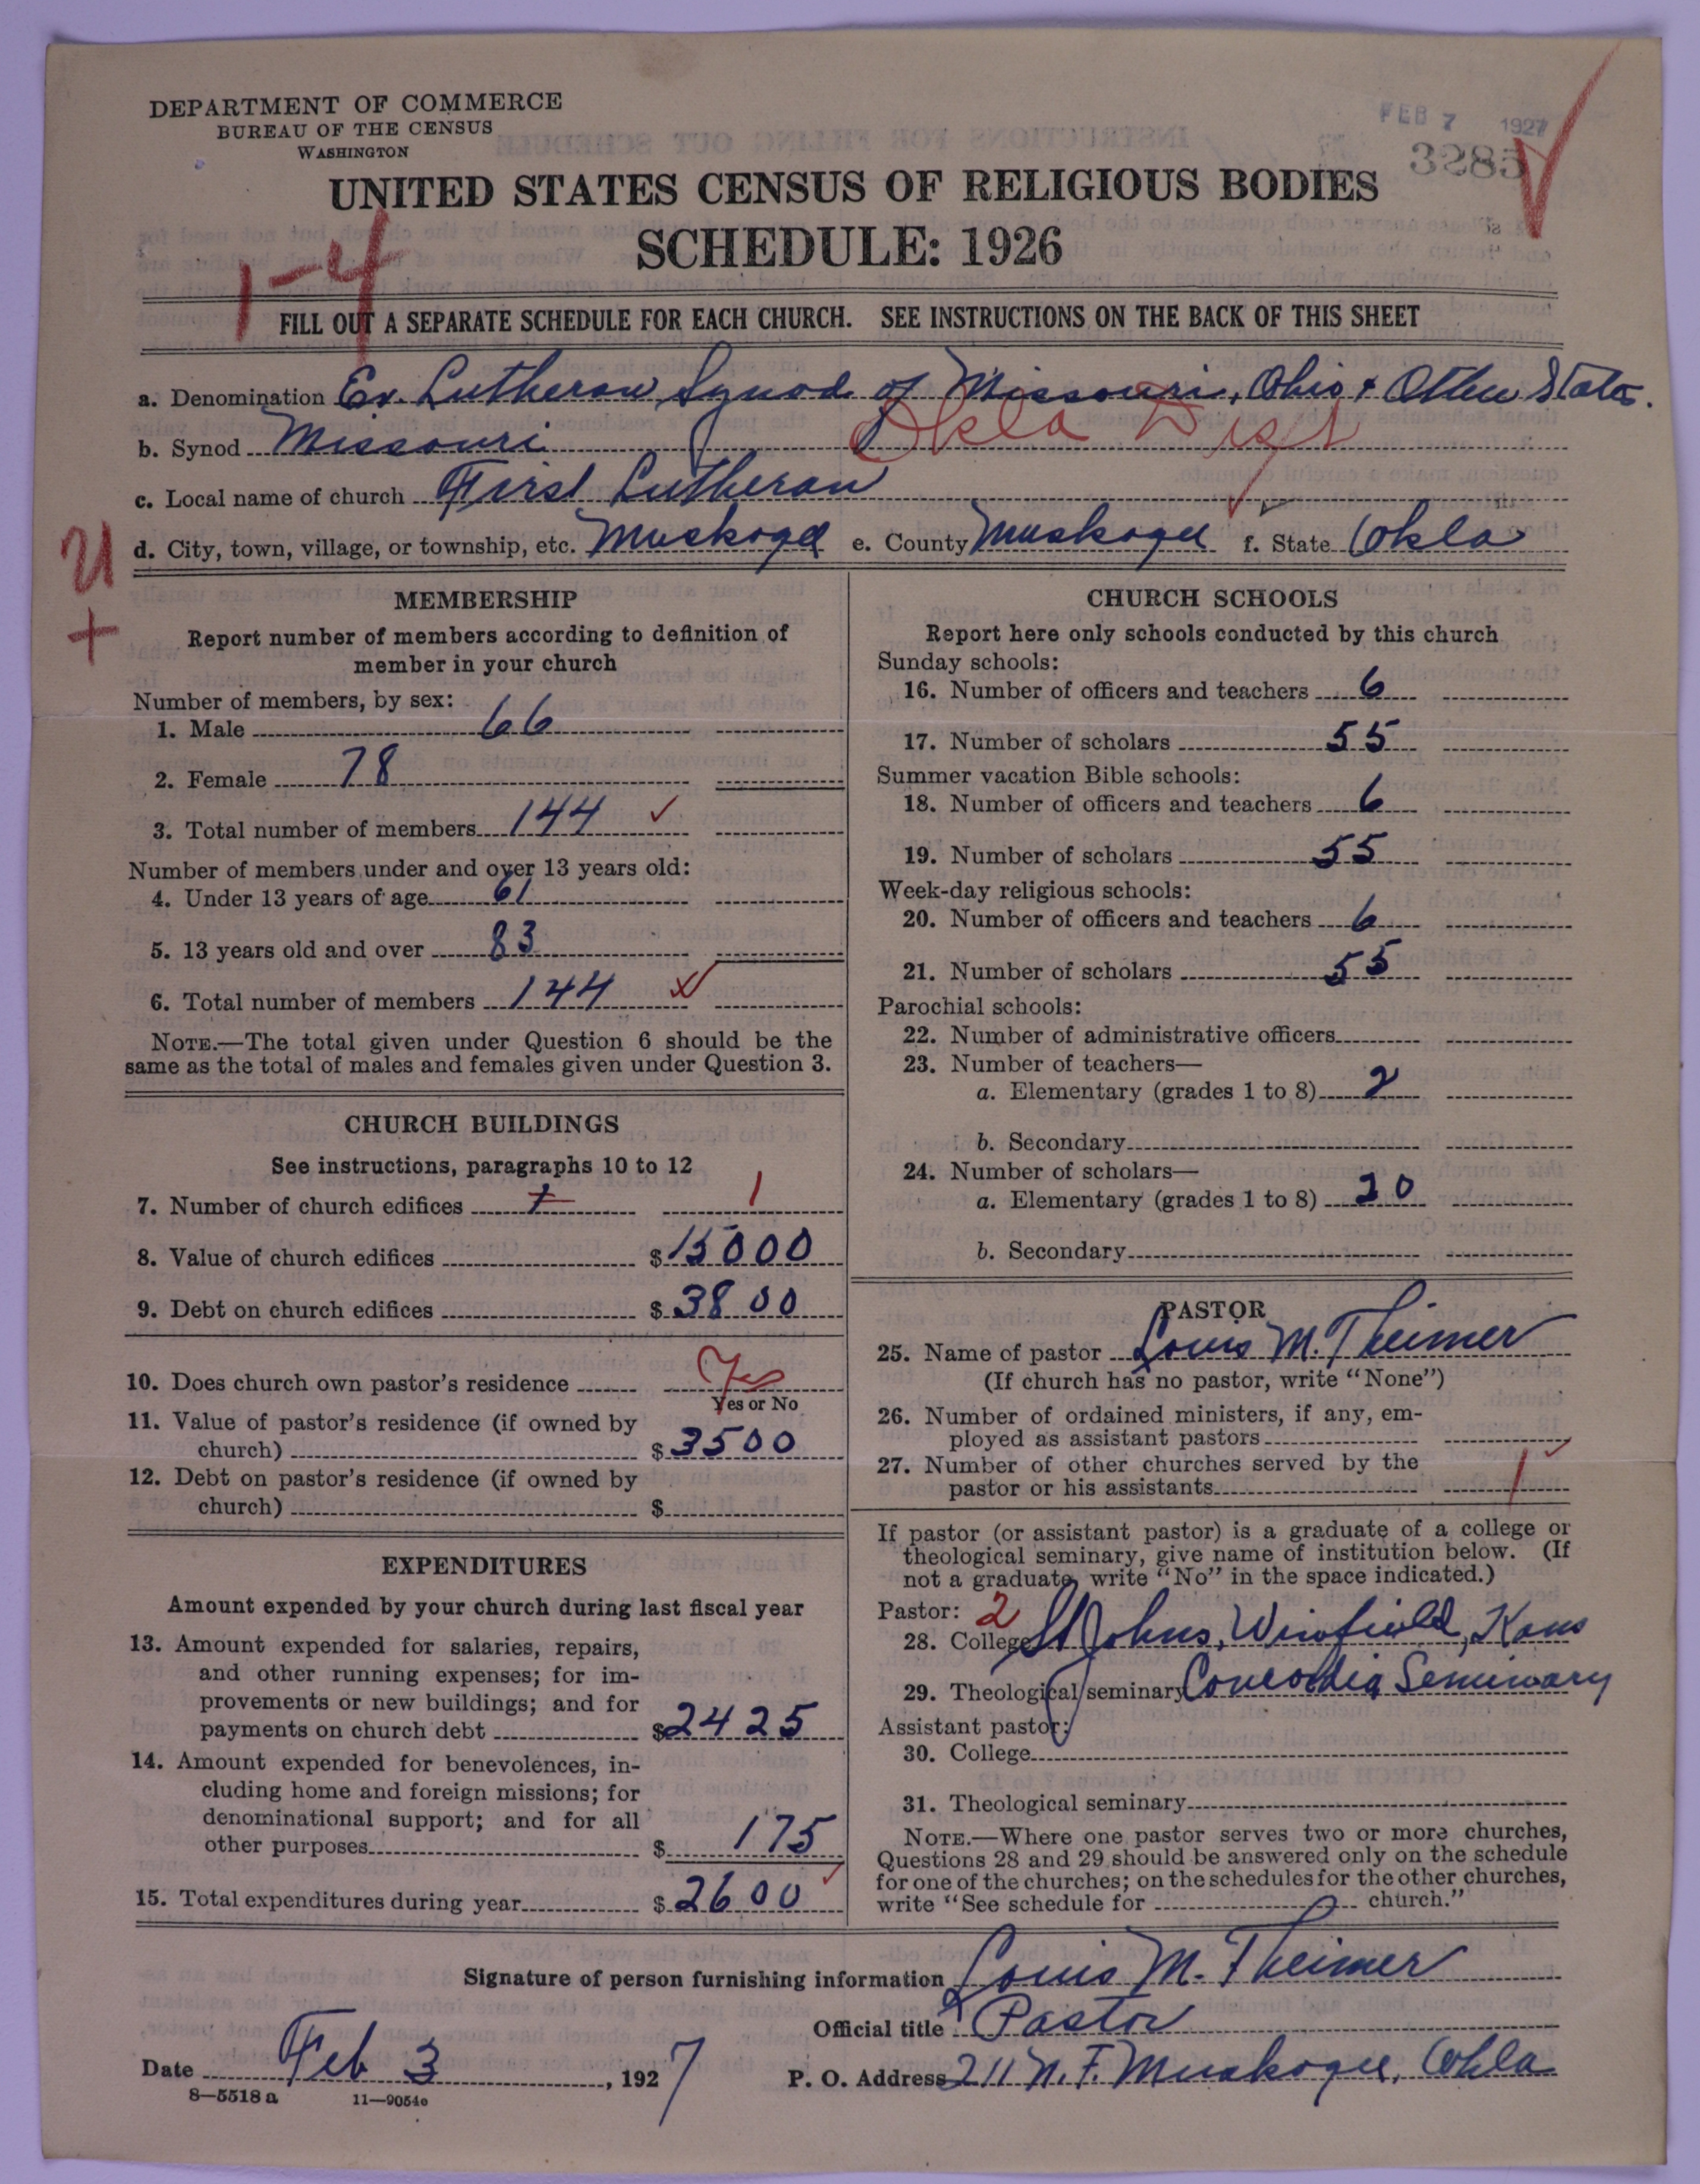 DEPARTMENT OF COMMERCE
BUREAU OF THE CENSUS
WASHINGTON
FEB 7 1927
3285
UNITED STATES CENSUS OF RELIGIOUS BODIES
SCHEDULE: 1926
1-4
FILL OUT A SEPARATE SCHEDULE FOR EACH CHURCH. SEE INSTRUCTIONS ON THE BACK OF THIS SHEET
a. Denomination Ev. Lutheran Synod of Missouri, Ohio + Other States.
b. Synod Missouri Okla Dist
c. Local name of church First Lutheran
d. City, town, village, or township, etc. Muskogee e. County Muskogee f. State Okla
U
+
MEMBERSHIP
Report number of members according to definition of
member in your church
Number of members, by sex:
1. Male 66
2. Female 78
3. Total number of members 144
Number of members under and over 13 years old:
4. Under 13 years of age 61
5. 13 years old and over 83
6. Total number of members 144
NOTE.—The total given under Question 6 should be the
same as the total of males and females given under Question 3.
CHURCH BUILDINGS
See instructions, paragraphs 10 to 12
7. Number of church edifices 1 1
8. Value of church edifices $ 15000
9. Debt on church edifices $ 3800
10. Does church own pastor's residence Yes
Yes or No
11. Value of pastor's residence (if owned by
church) $ 3500
12. Debt on pastor's residence (if owned by
church) $
EXPENDITURES
Amount expended by your church during last fiscal year
13. Amount expended for salaries, repairs,
and other running expenses; for im-
provements or new buildings; and for
payments on church debt $ 2425
14. Amount expended for benevolences, in-
cluding home and foreign missions; for
denominational support; and for all
other purposes $ 175
15. Total expenditures during year $ 2600
CHURCH SCHOOLS
Report here only schools conducted by this church
Sunday schools:
16. Number of officers and teachers 6
17. Number of scholars 55
Summer vacation Bible schools:
18. Number of officers and teachers 6
19. Number of scholars 55
Week-day religious schools:
20. Number of officers and teachers 6
21. Number of scholars 55
Parochial schools:
22. Number of administrative officers
23. Number of teachers—
a. Elementary (grades 1 to 8) 2
b. Secondary
24. Number of scholars—
a. Elementary (grades 1 to 8) 20
b. Secondary
PASTOR
25. Name of pastor Louis M. Theimer
(If church has no pastor, write "None")
26. Number of ordained ministers, if any, em-
ployed as assistant pastors
27. Number of other churches served by the
pastor or his assistants 1
If pastor (or assistant pastor) is a graduate of a college or
theological seminary, give name of institution below. (If
not a graduate, write "No" in the space indicated.)
Pastor: 2
28. College St Johns, Winfield, Kans
29. Theological seminary Concordia Seminary
Assistant pastor:
30. College
31. Theological seminary
NOTE.—Where one pastor serves two or more churches,
Questions 28 and 29 should be answered only on the schedule
for one of the churches; on the schedules for the other churches,
write "See schedule for church."
Signature of person furnishing information Louis M. Theimer
Official title Pastor
Date Feb 3, 1927 P. O. Address 211 N. F. Muskogee, Okla
8—5518 a 11—9054c